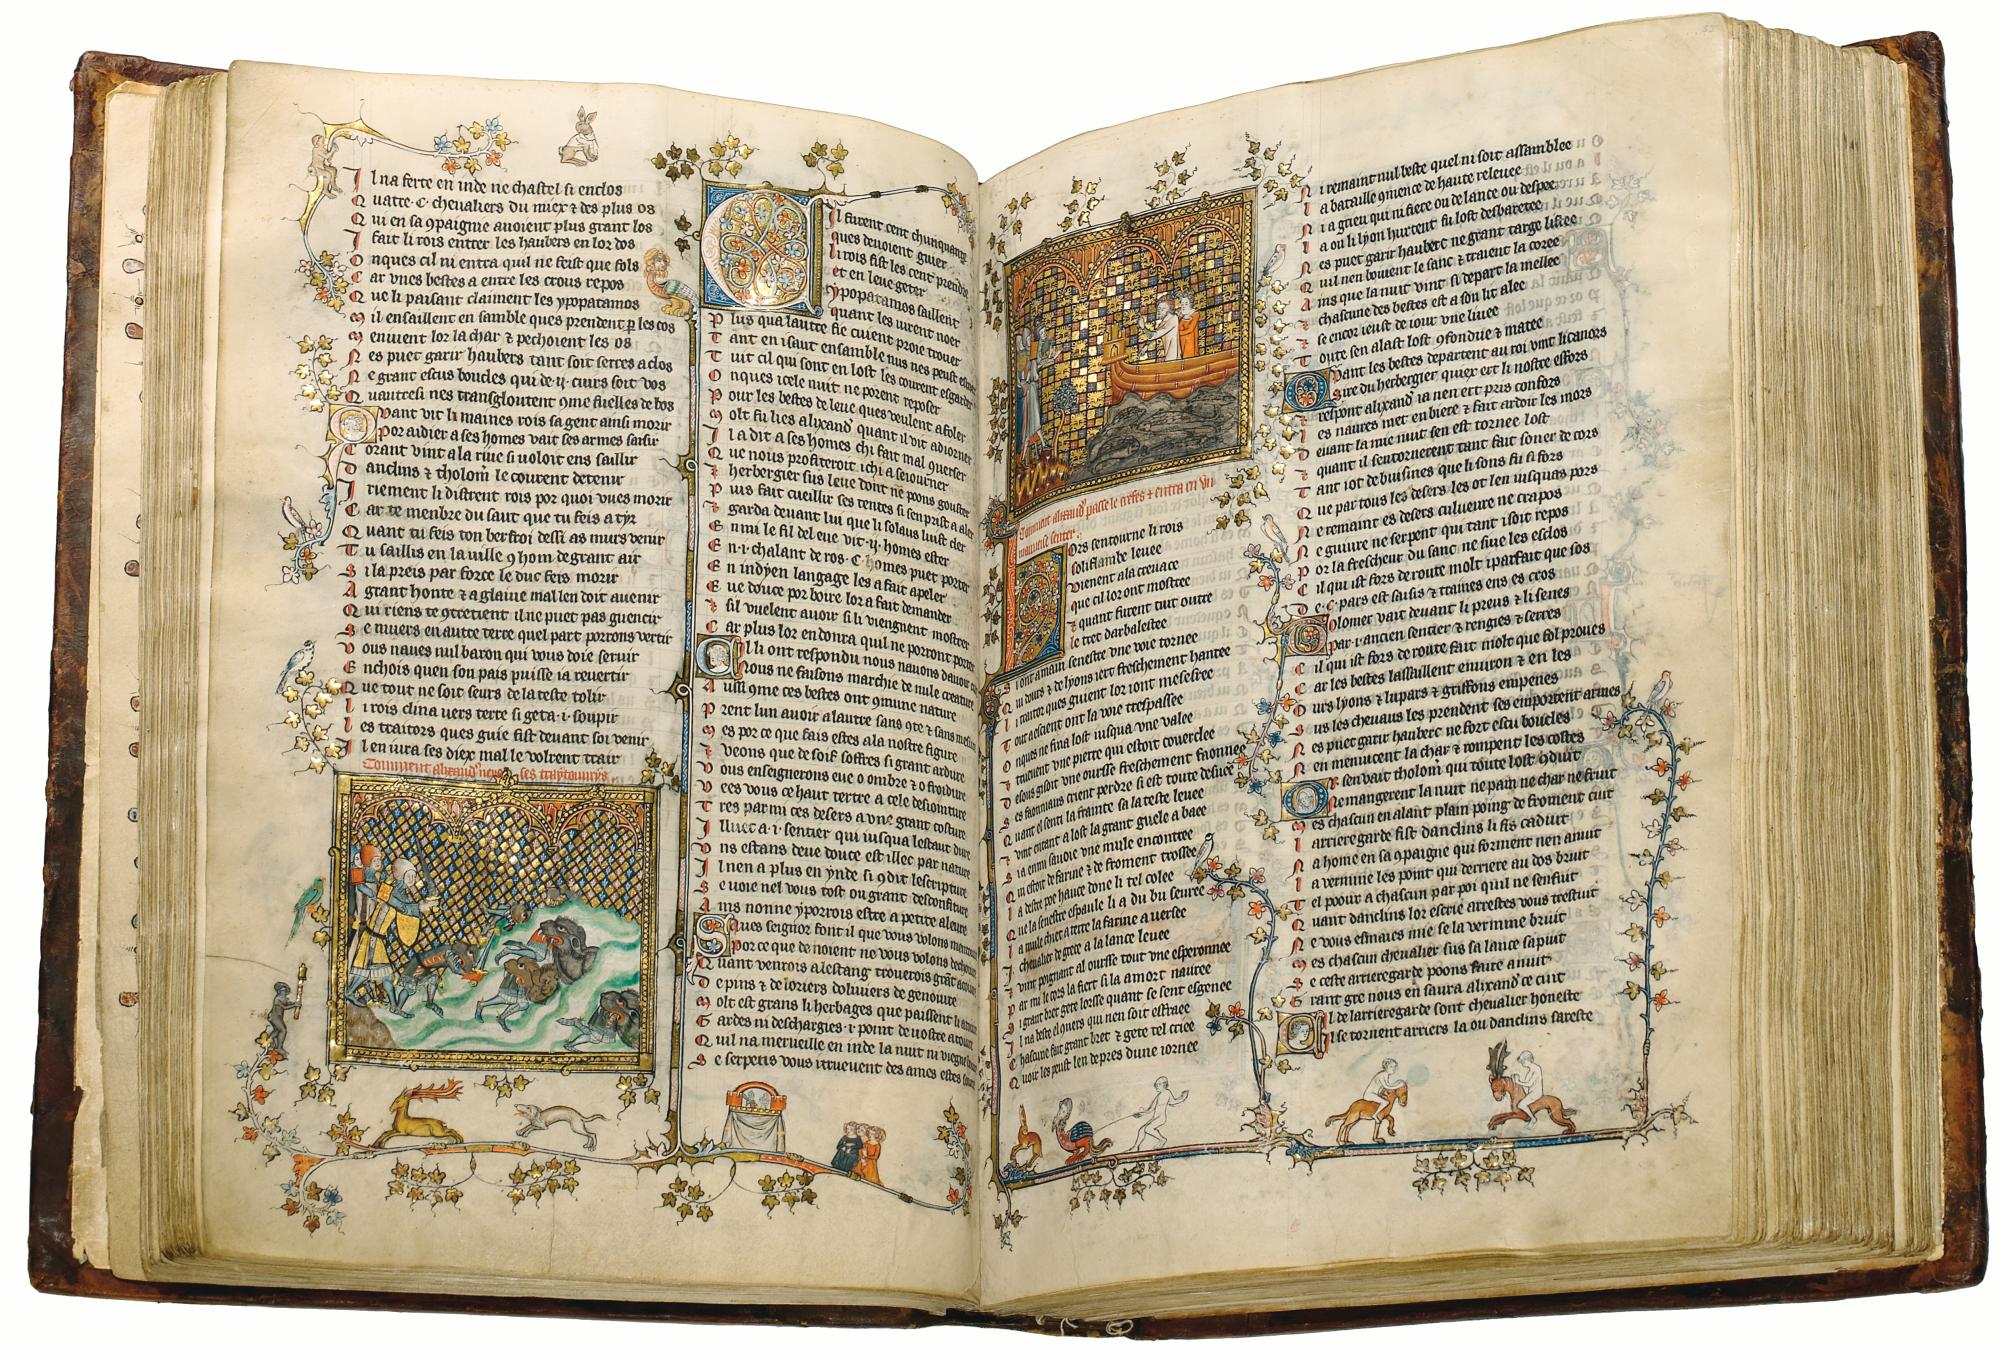 Il na ferte en inde ne chastel si enclos
Quatre .c. chevaliers du miex & des plus os
Qui en sa 9paigne avoient plus grant los
I fait li rois entrer les haubers en lor dos
Onques cil ni entra quil ne feist que fols
Car unes bestes a entre les crous repos
Que li paisant claiment les ypopatamos
Mil ensaillent en samble ques prendent p les cos
Menuient lor la char & pechoient les os
Nes puet garir haubers tant soit serres a clos
Ne grant escus boucles qui de .ij. cuirs soit vos
Quautresi nes transgloutent 9me fuelles de bos
Quant vit li maines rois sa gent ainsi morir
Por aidier a ses homes vait ses armes saisir
Corant vint a la rive si voloit ens saillir
Danclins & tholom le courent detenir
Iriement li distrent rois por quoi vues morir
Car te menbre du saut que tu feis a tyr
Quant tu feis ton berfroi dessi as murs venir
Tu saillis en la ville 9 hom de grant air
Si la preis par force le duc feis morir
A grant honte & a glaive mal len doit avenir
Qui riens te 9tretient il ne puet pas guencir
Se muers en autre terre quel part porrons vertir
Vous naves nul baron qui vous doie servir
Enchois quen son pais puisse ia revertir
Que tout ne soit seurs de la teste tolir
Li rois clina vers terre si geta .i. soupir
Les traitors ques guie fist devant soi venir
Il en iura ses diex mal le volrent trair
Comment alixand ses traytours
Il furent cent chunquante
ques devoient guier
Li rois fist les cent prendre
et en leve geter
Ypopatamos saillent
quant les virent noer
Plus qua lautre fie cuient proie trover
Tant en i saut ensamble nus nes peust
Tuit cil qui sont en lost les courent esgarder
Onques icele nuit ne porent reposer
Pour les bestes de leve ques veulent afoler
Molt fu lies alixand quant il vit adiorner
Il a dit a ses homes chi fait mal converser
Que nous profiteroit ichi a seiourner
& herbergier sus leve dont ne pons gouster
Puis fait cueillir ses tentes si senprist a aler
& garda devant lui que li solaus luist cler
En mi le fil del eve vit .ij. homes ester
En .i. chalant de ros .c. homes puet porter
En indyen langage les a fait apeler
Eve douce por boire lor a fait demander
& sil vuelent avoir si li viengnent mostrer
Car plus lor en donra quil ne porront porter
Cil li ont respondu nous navons davoir
Nous ne faisons marchie de nule creature
Aussi 9me ces bestes ont 9mune nature
Prent lun avoir a lautre sans
Mes por ce que fais estes a la nostre figure
& veons que de soif soffres si grant ardure
Vous enseignerons eve o ombre & o froidure
Vees vous ce haut tertre a cele
Tres parmi ces desers a une grant costure
Illuec a .i. sentier qui iusqua lestanc dure
Uns estans deve douce est illec par nature
Il nen a plus en ynde si 9 dit lescripture
Se voie nel vous tost ou grant desconfiture
Ains nonne y porrois estre a petite aleure
Saues seignor font il que vous volons mentir
Por ce que de noient ne vous volons dechoivre
Quant venrois a lestang troverois grant
De pins & de loriers doliviers de genoivre
Molt est grans li herbages que paissent li
Gardes ni deschargies .i. point de vostre
Quil na merveille en inde la nuit ni viegne
Se serpens vous treuvent des ames estes
Comment alixand passe le & entra en un
mauvaise sentier
Ors sen tourne li rois
soliflambe levee
Vienent a la crevace
que cil lor ont mostree
& quant furent tuit outre
le tret darbalestee
Si ont a main senestre une voie tornee
Qui dours & de lyons iert freschement hantee
Li traitor ques guient lor i ont mesestree
Tout a escient ont la voie trespassee
Onques ne fina lost iusqua une valee
Truevent une pierre qui estoit couverclee
Desous gisoit une oursse freschement faonnee
Les faonniaus crient perdre si est toute desvee
Quant el senti la frainte sa la teste levee
& vint corant a lost la grant guele a baee
Ia en mi sa voie une mule encontree
Qui estoit de farine & de froment trossee
La destre poe hauce done li tel colee
Que la senestre espaule li a du bu sevree
La mule chiet a terre la farine a versee
.I. chevalier de grece a la lance levee
Vint poignant al oursse tout une esperonnee
Par mi le cors la fiert si la a mort navree
Si grant bret gete lorsse quant se sent esgenee
Il na beste el quers qui nen soit effraee
Chascune fait grant bret & gete tel criee
Quoir les peust len de pres dune iornee
Ni remaint nul beste quel ni soit assamblee
La bataille 9mence de haute relevee
Ia grieu qui ni fiere ou de lance ou despee
La ou li lyon hurtent fu lost desbaretee
Nes puet garir haubert ne grant targe listee
Quil nen boivent le sanc & traient la coree
Ains que la nuit vint si depart la mellee
Chascune des bestes est a son lit alee
& se encor ieust de iour une livee
Toute sen alast lost 9fondue & matee
Quant les bestes departent au roi vint licanors
Sire du herbergier quiex ert li nostre esfors
& respont alixand ia nen ert pris confors
Les navres met en biere & fait ardoir les mors
Devant la mie nuit sen est tornee lost
& quant il sentornerent tant fait soner de cors
Tant iot de buisines que li sons fu si fors
Que par tous les desers les ot len iusquas pors
Ne remaint es desers culuevre ne crapos
Ne guivre ne serpent qui tant i soit repos
Por la frescheur du sanc ne sive les esclos
Cil qui ist fors de route molt i parfait que sos
De .c. pars est saisis & traines ens es
Tolomer vait devant li preus & li senes
Par .i. ancien sentier & rengies & serres
Cil qui ist fors de route fait molt que fol proves
Car les bestes lassaillent environ & en les
Ours lyons & lupars & griffons empenes
Sus les chevaus les prendent ses emportent armes
Nes puet garir haubert ne fort escu boucles
Nen menucent la char & rompent les costes
Or sen vait tholom qui toute lost 9duit
Ne mangerent la nuit ne pain ne char ne fruit
Mes chascun en alant plain poing de froment cuit
Larrieregarde fist danclins li fis caduit
Na home en sa 9paigne qui forment nen anuit
La vermine les point qui derriere au dos bruit
Tel poour a chascun par poi quil ne senfuit
Quant danclins lor escrie arrestes vous trestuit
Ne vous esmaies mie se la vermine bruit
Mes chascun chevalier sus sa lance sapuit
Se ceste arrieregarde poons faire anuit
Grant gre nous en saura alixand ce cuit
Cil de larrieregarde sont chevalier honeste
Il se tornent arriers la ou danclins sareste